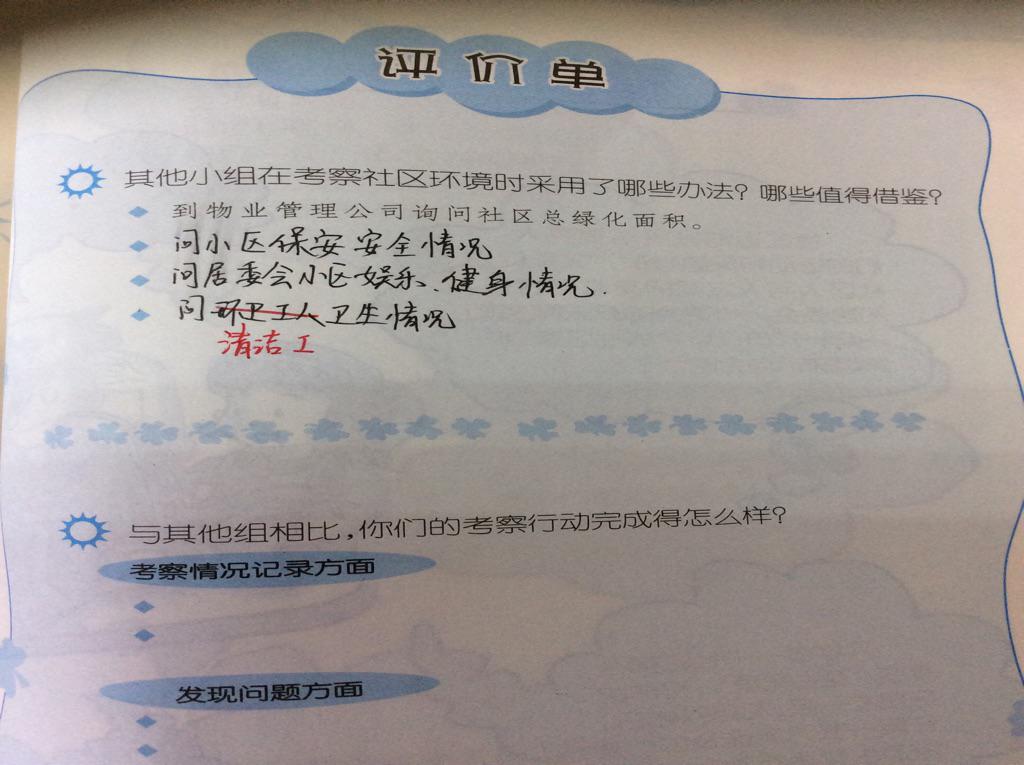 评价单
其他小组在考察社区环境时采用了哪些办法?哪些值得借鉴?
到物业管理公司询问社区总绿化面积。
问小区保安安全情况
问居委会小区娱乐、健身情况.
问环卫工人卫生情况
清洁工
与其他组相比,你们的考察行动完成得怎么样?
考察情况记录方面
发现问题方面